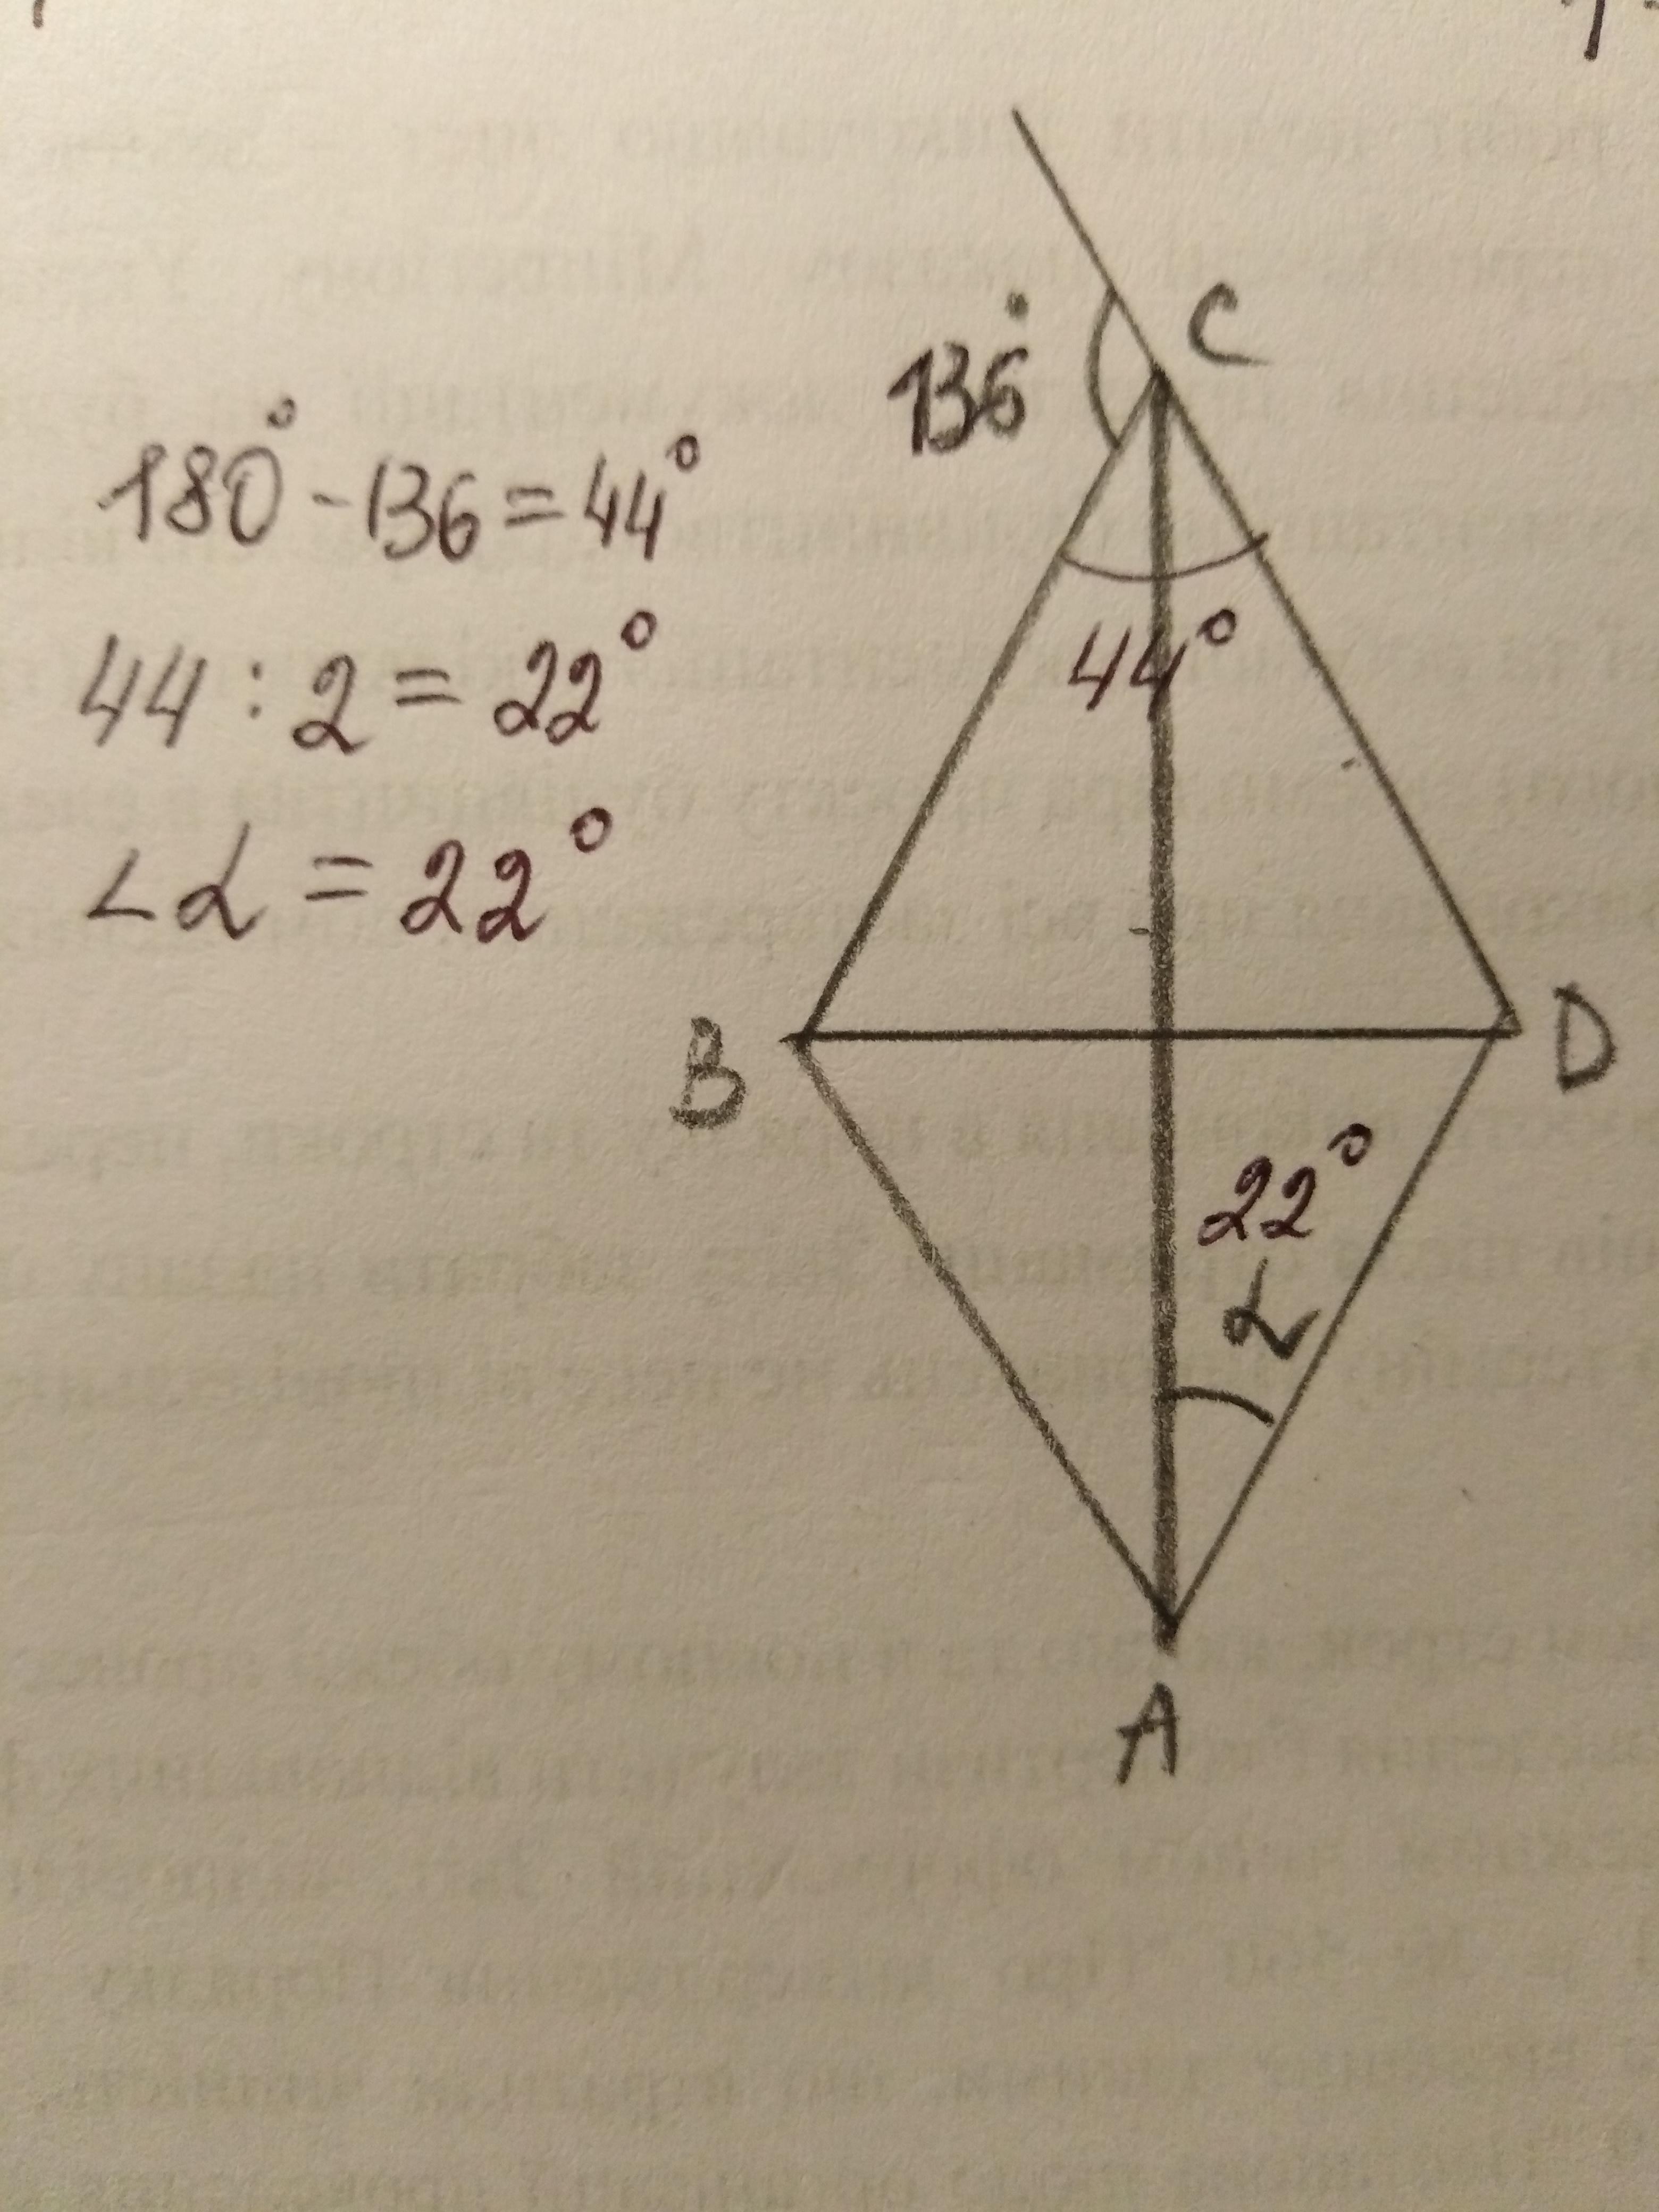 180° - 136 = 44°
44 : 2 = 22°
∠α = 22°
C
136°
44°
B
D
22°
α
A